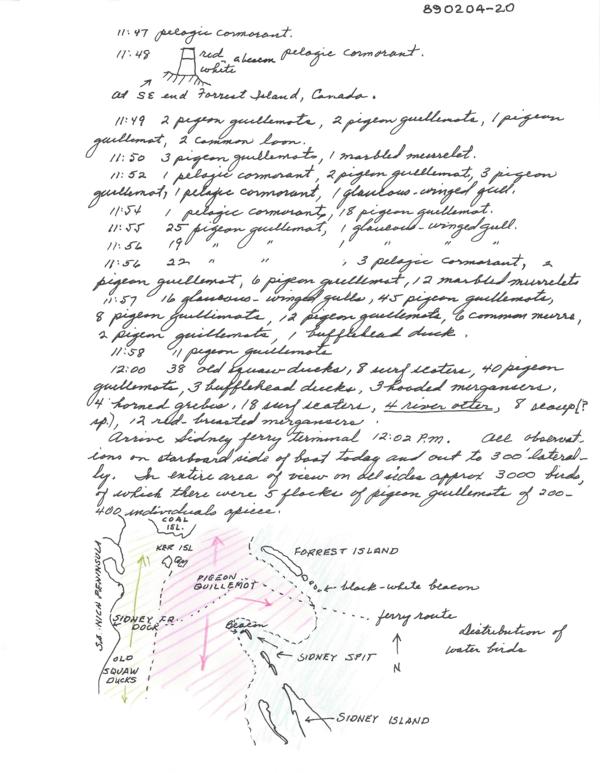 890204-20
11:47 pelagic cormorant.
11:48 red white a beacon pelagic cormorant.
At SE end Forrest Island, Canada.
11:49 2 pigeon guillemots, 2 pigeon guillemots, 1 pigeon
guillemot, 2 common loon.
11:50 3 pigeon guillemots, 1 marbled meurrelet.
11:52 1 pelagic cormorant, 2 pigeon guillemot, 3 pigeon
guillemot, 1 pelagic cormorant, 1 glaucous-winged gull.
11:54 1 pelagic cormorant, 18 pigeon guillemot.
11:55 25 pigeon guillemot, 1 glaucous-winged gull.
11:56 19 " " , " " "
11:56 22 " " , 3 pelagic cormorant, 2
pigeon guillemot, 6 pigeon guillemot, 12 marbled murrelets
11:57 16 glaucous-winged gulls, 45 pigeon guillemots,
8 pigeon guillimots, 12 pigeon guillemots, 6 common murre,
2 pigeon guillemots, 1 bufflehead duck.
11:58 11 pigeon guillemots
12:00 38 old squaw ducks, 8 surf scoters, 40 pigeon
guillemots, 3 bufflehead ducks, 3 hooded mergansers,
4 horned grebes, 18 surf scoters, 4 river otter, 8 scaup (?
sp.), 12 red-breasted mergansers.
Arrive Sidney ferry terminal 12:02 P.M. All observat-
ions on starboard side of boat today and out to 300' lateral-
ly. In entire area of view on all sides approx 3000 birds,
of which there were 5 flocks of pigeon guillemots of 200-
400 individuals apiece.
COAL
ISL.
KER ISL
FORREST ISLAND
SAANICH PENINSULA
PIGEON
GUILLEMOT
black-white beacon
SIDNEY FR.
DOCK
Beacon
ferry route
Distribution of
water birds
OLD
SQUAW
DUCKS
SIDNEY SPIT
N
SIDNEY ISLAND